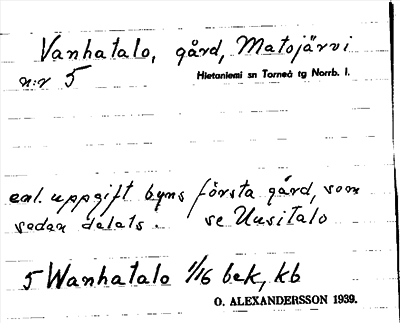 Vanhatalo, gård, Matojärvi
n:r 5 Hietaniemi sn Torneå tg Norrb. l.
enl. uppgift byns första gård, som
sedan delats. se Uusitalo
5 Wanhatalo 1/16 bek, kb
O. ALEXANDERSSON 1939.